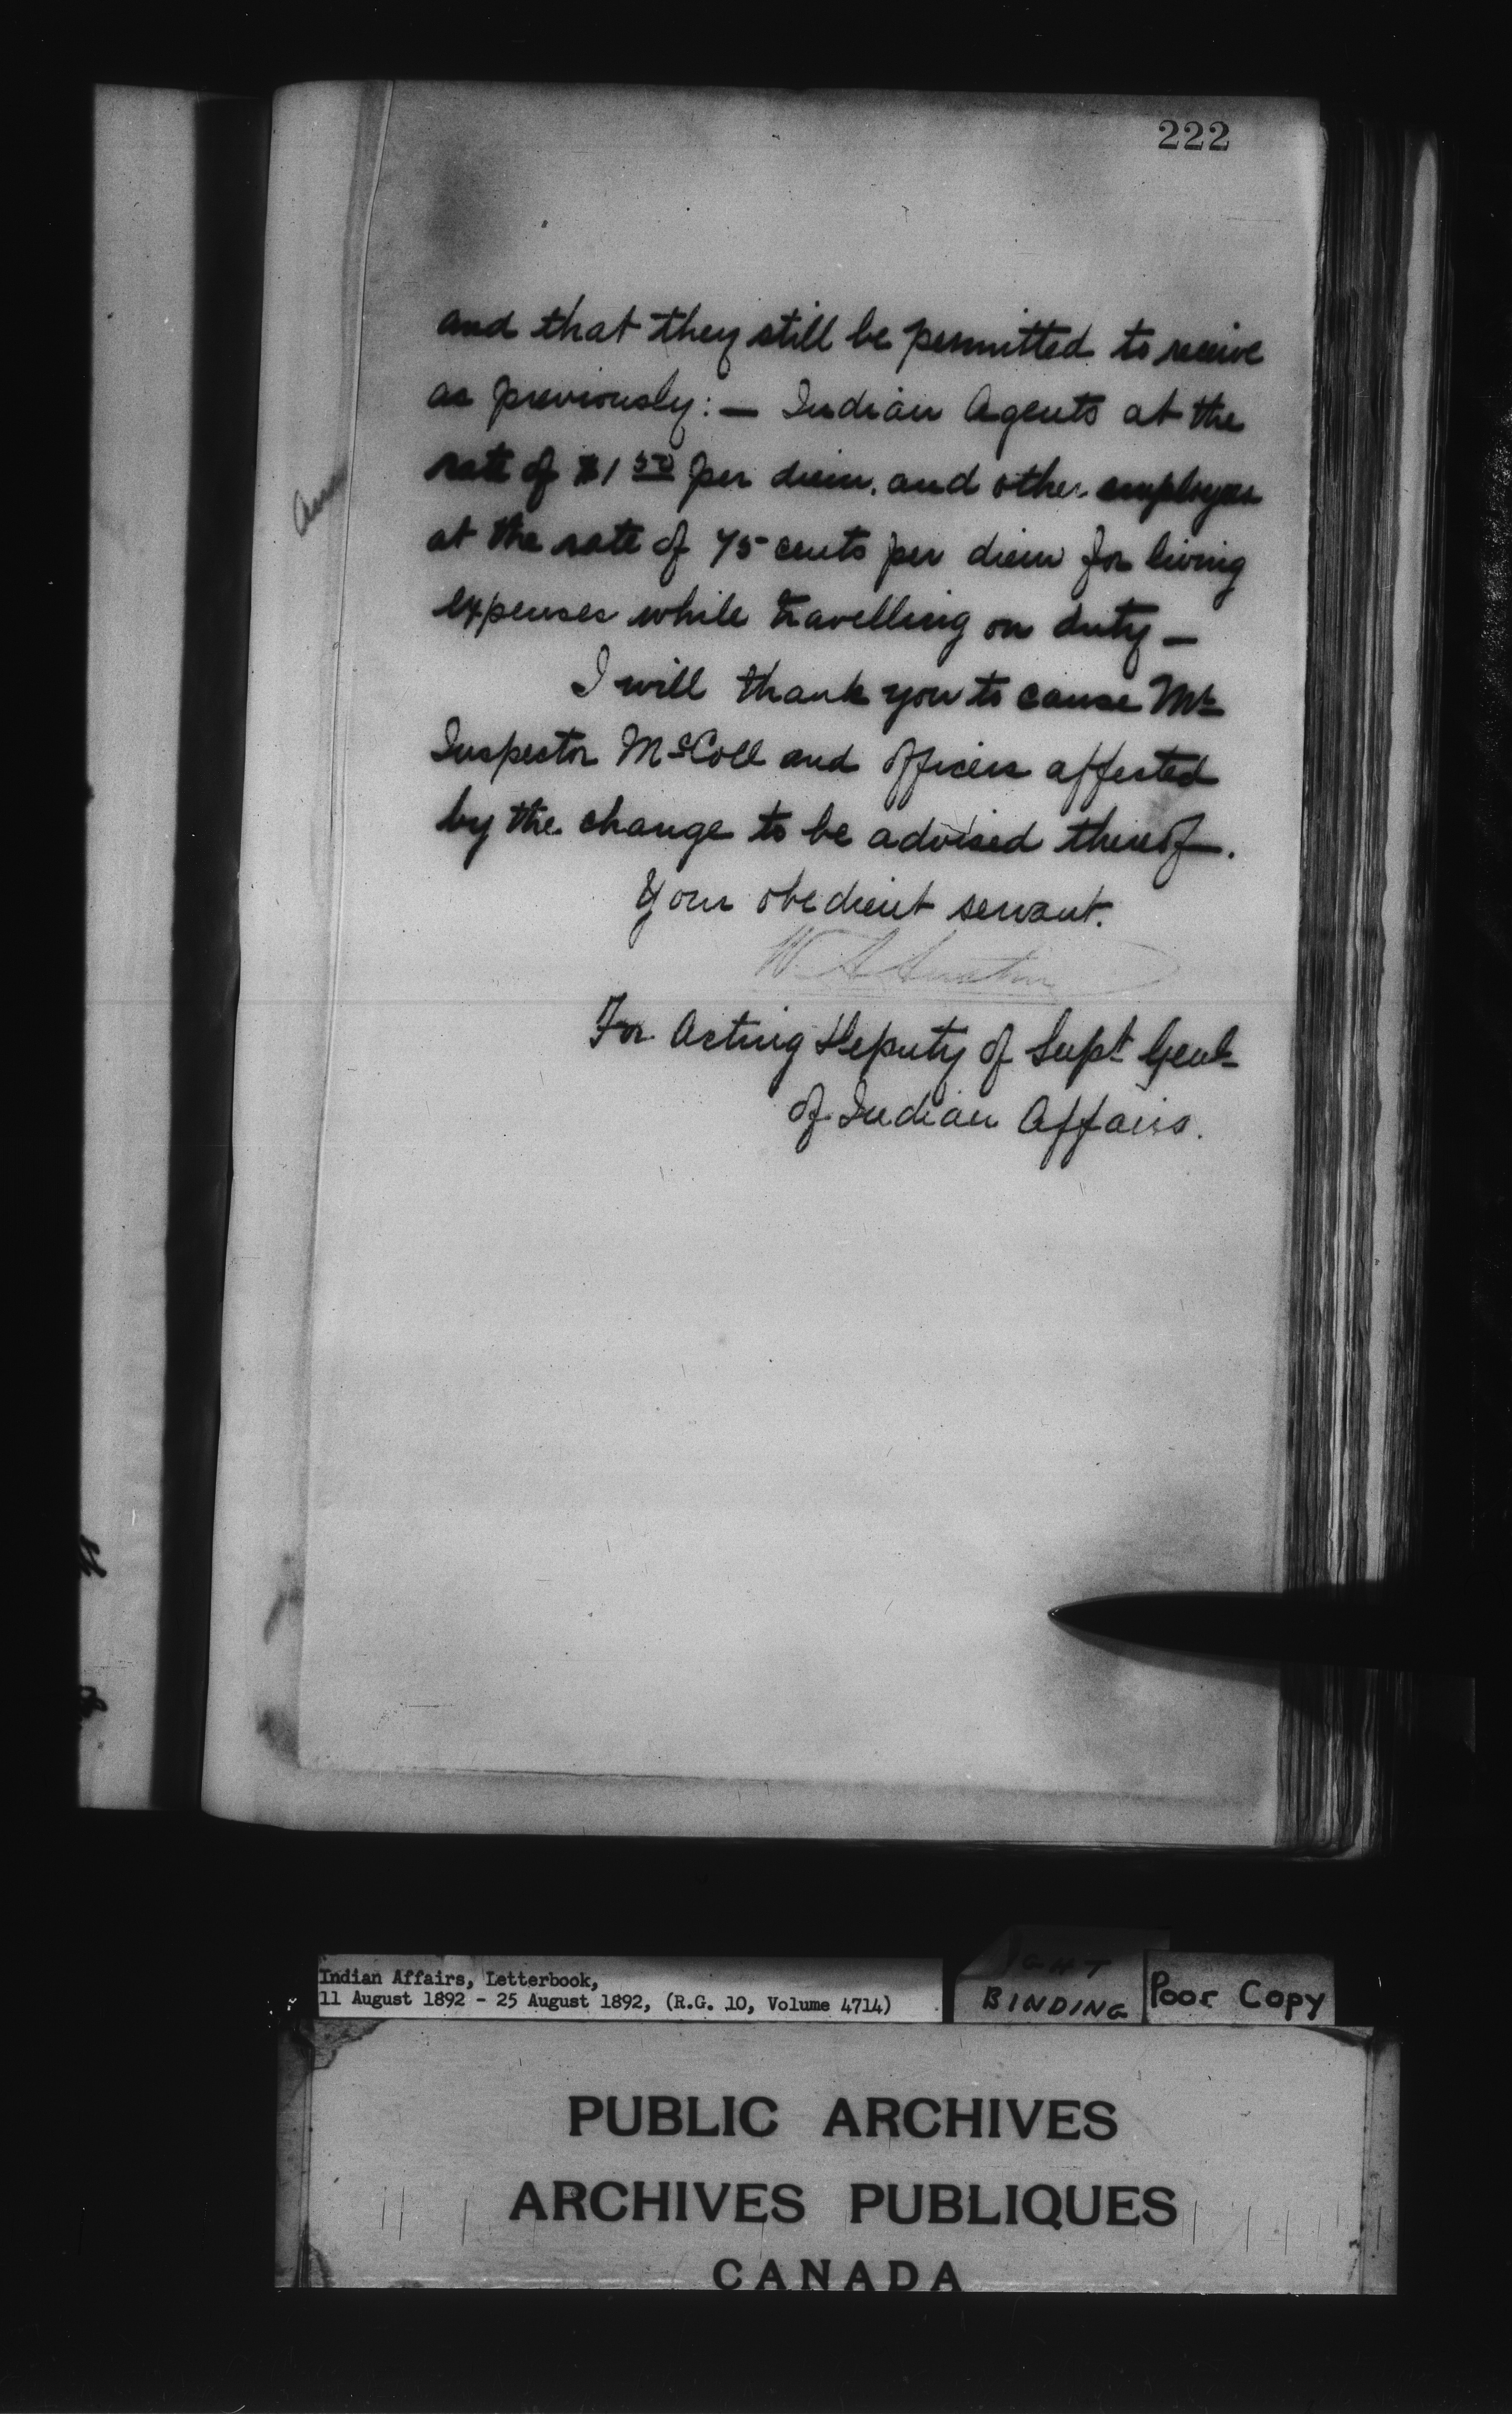 222
and that they still be permitted to receive
as previously: — Indian Agents at the
rate of $1 50 per diem, and other employees
at the rate of 75 cents per diem for living
expenses while travelling on duty —
I will thank you to cause Mr
Inspector McColl and officers affected
by the change to be advised thereof.
Your obedient servant.
W. A. Austin
For Acting Deputy of Supt Genl
of Indian Affairs.
Indian Affairs, Letterbook,
11 August 1892 - 25 August 1892, (R.G. 10, Volume 4714)
BINDING
Poor Copy
PUBLIC ARCHIVES
ARCHIVES PUBLIQUES
CANADA